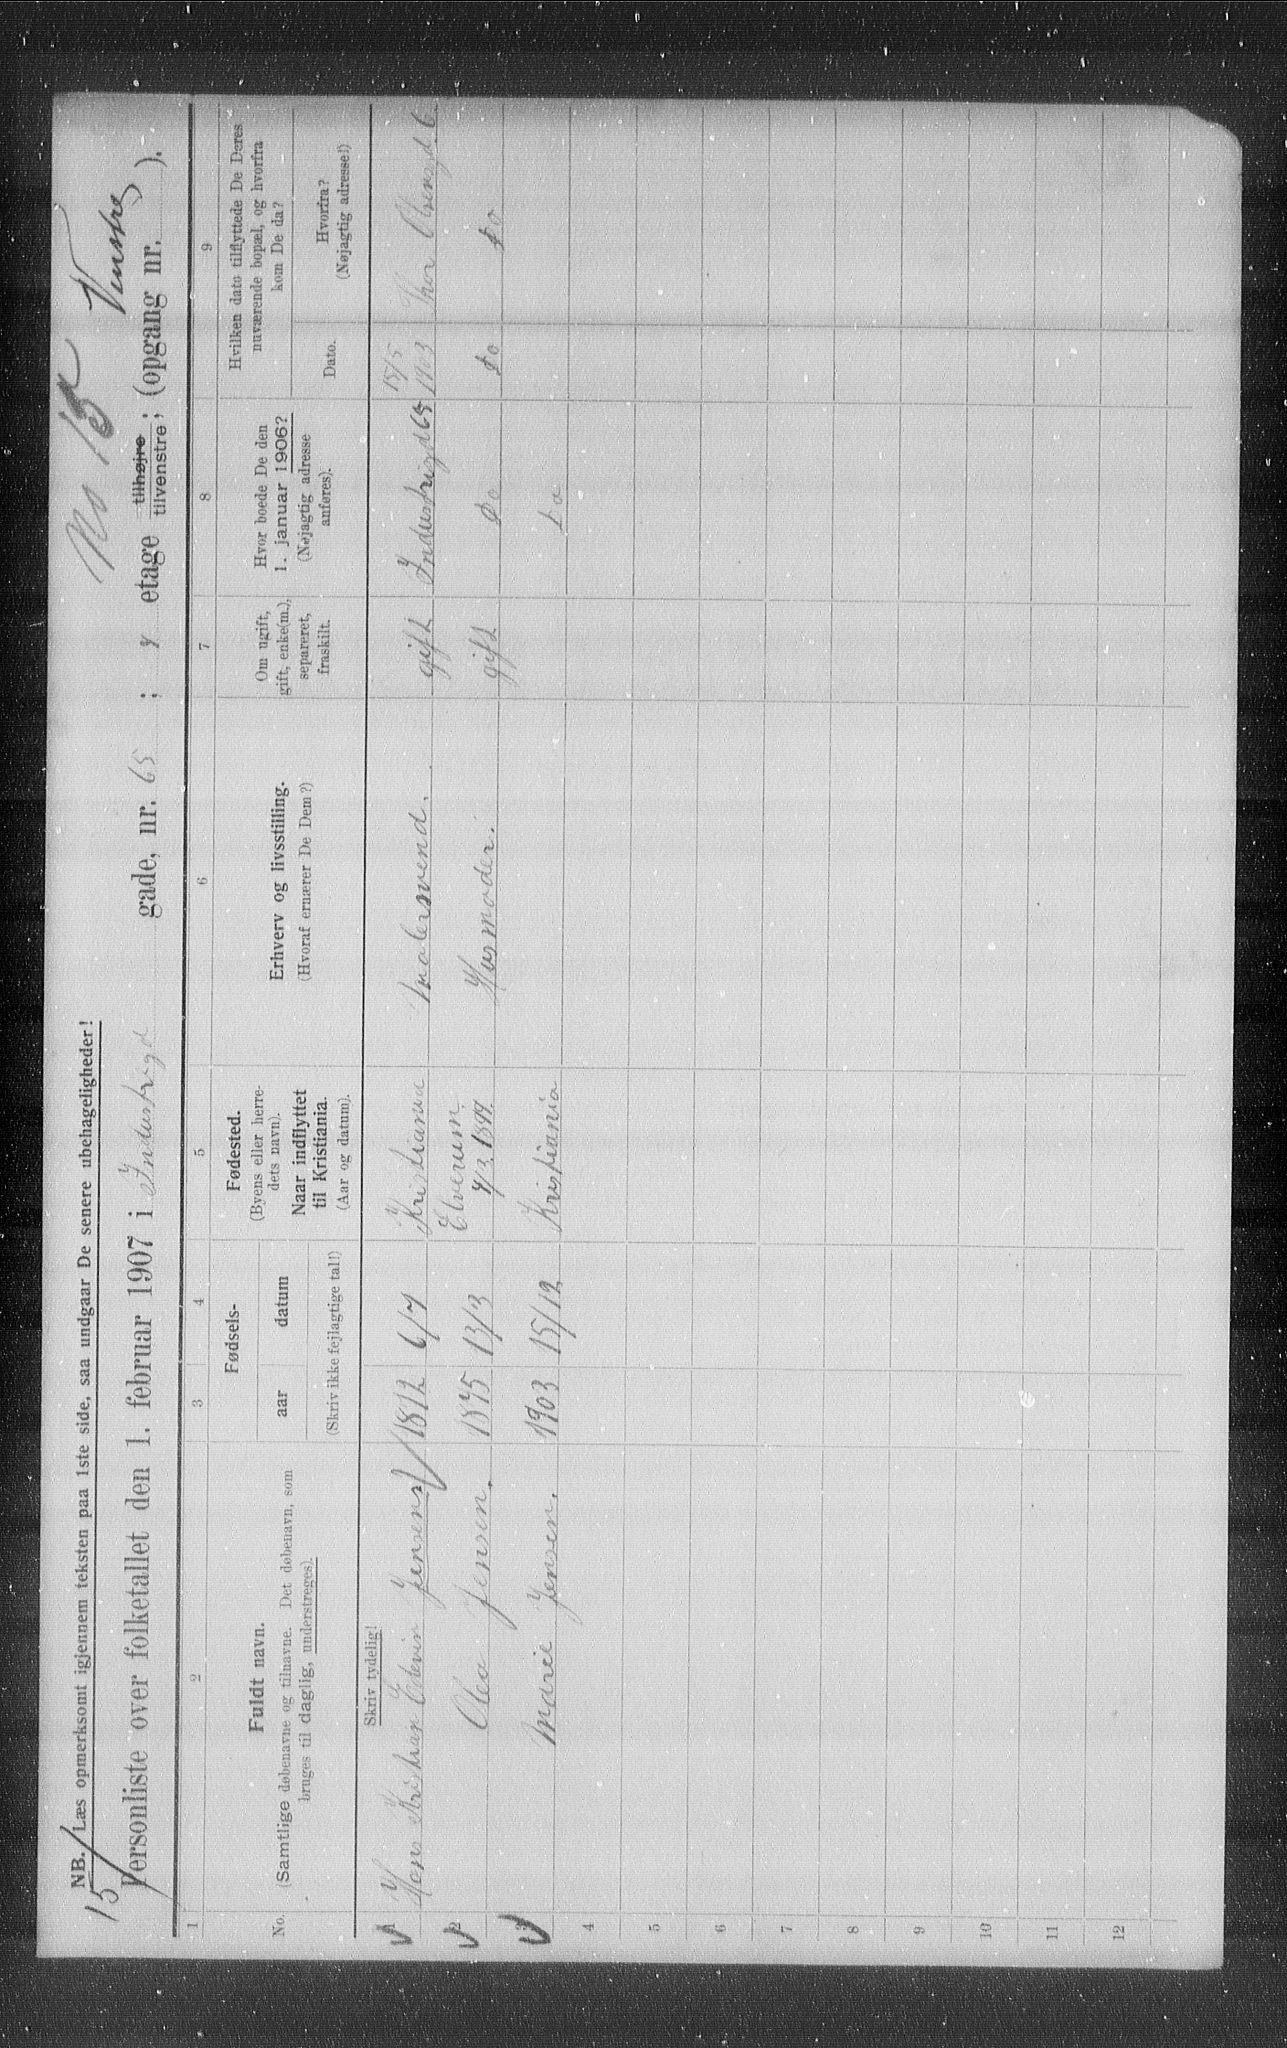 No 15
Venstre
NB. Læs opmerksomt igjennem teksten paa 1ste side, saa undgaar De senere ubehageligheder!
15
Personliste over folketallet den 1. februar 1907 i Industrigd gade, nr. 65 ; etage tilhøjre tilvenstre; (opgang nr. ).
1 2 3 4 5 6 7 8 9
No.
Fuldt navn.
(Samtlige døbenavne og tilnavne. Det døbenavn, som
bruges til daglig, understreges).
Fødsels-
aar datum
(Skriv ikke fejlagtige tal!)
Fødested.
(Byens eller herre-
dets navn).
Naar indflyttet
til Kristiania.
(Aar og datum).
Erhverv og livsstilling.
(Hvoraf ernærer De Dem?)
Om ugift,
gift, enke(m.),
separeret,
fraskilt.
Hvor boede De den
1. januar 1906?
(Nøjagtig adresse
anføres).
Hvilken dato tilflyttede De Deres
nuværende bopæl, og hvorfra
kom De da?
Dato.
Hvorfra?
(Nøjagtig adresse!)
Skriv tydelig!
1 Hans Kristian Edevin Jensen 1872 6/7 Kristiania Malersvend. gift Industrigd 65 15/5 1903 Thor Olsensgd. 6
2 Olea Jensen. 1875 13/3 Elverum 4/3 1899. Husmoder. gift Do Do Do
3 Marie Jensen. 1903 15/12 Kristiania Do
4
5
6
7
8
9
10
11
12